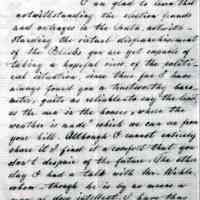 I am glad to learn that
notwithstanding the election frauds
and outrages in the South, notwith-
standing the virtual disfranchisement
of the Blacks you are yet capable of
taking a hopeful view of the politi-
cal situation, since thus far I have
always found you a trustworthy baro-
meter, quite as reliable to say the least,
as the man in the houses, where the
weather is made" which we can see from
your hill. Although I cannot entirely
share it I find it a comfort that you
don't despair of the future. The other
day I had a talk with Mr.
whom though he is by no means a
man of intellect, I have thus